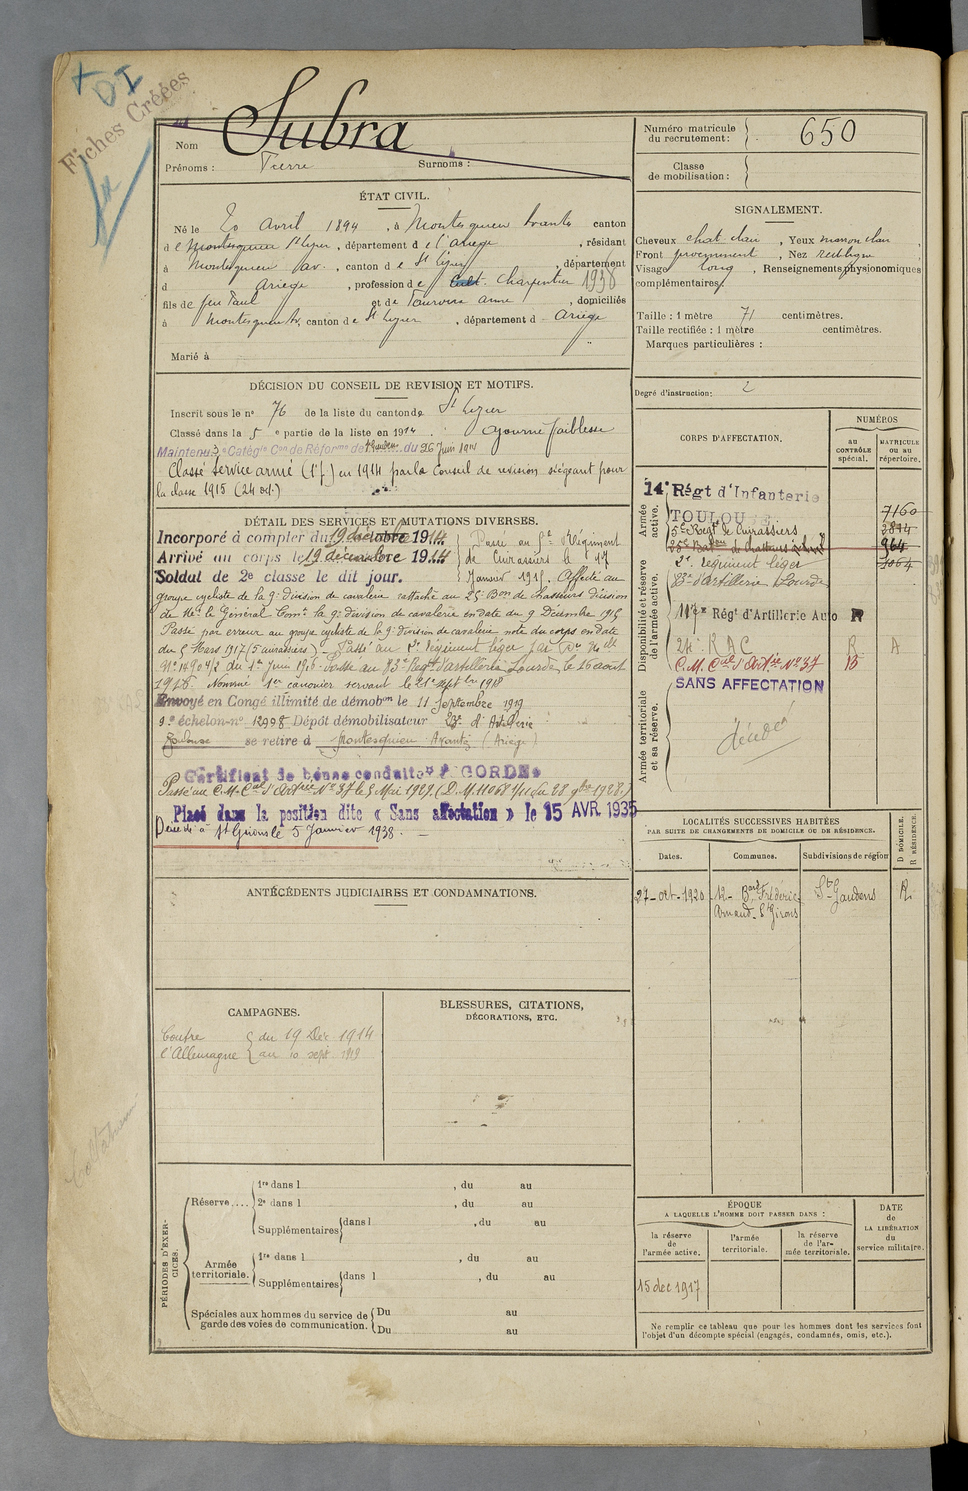 + DI
Fiches Créées
Nom Subra
Prénoms : Pierre Surnoms :
Numéro matricule du recrutement : 650
Classe de mobilisation :
ÉTAT CIVIL.
Né le 20 Avril 1894, à Montesquieu Avantès canton
de Montesquieu St Lizier, département de l'Ariège, résidant
à Montesquieu av., canton de St Lizier, département
d Ariège, profession de Cult. Charpentier 1938
fils de feu Paul et de Anne, domiciliés
à Montesquieu Av, canton de St Lizier, département d Ariège
Marié à
SIGNALEMENT.
Cheveux chat clair, Yeux marron clair
Front proéminent, Nez rectiligne
Visage long, Renseignements physionomiques
complémentaires :
Taille : 1 mètre 71 centimètres.
Taille rectifiée : 1 mètre centimètres.
Marques particulières :
Degré d'instruction : 2
DÉCISION DU CONSEIL DE REVISION ET MOTIFS.
Inscrit sous le n° 76 de la liste du canton de St Lizier
Classé dans la 5e partie de la liste en 1914. Ajourné faiblesse
Maintenu 3e Catégie Con de Réforme de du 26 Juin 1941
Classé service armé (1e p) en 1914 par le Conseil de revision siégeant pour
la classe 1915 (24 oct.)
DÉTAIL DES SERVICES ET MUTATIONS DIVERSES.
Incorporé à compter du 19 décembre 1914
Arrivé au corps le 19 décembre 1914
Soldat de 2e classe le dit jour.
Passé au 5e Régiment
de Cuirassiers le 17
Janvier 1915. Affecté au
groupe cycliste de la 9e division de cavalerie rattaché au 25e Bon de Chasseurs division
de Mr le Général Comt la 9e division de cavalerie en date du 9 Décembre 1915
Passé par erreur au groupe cycliste de la 9e division de cavalerie note du corps en date
du 5 Mars 1917 (5 cuirassiers). Passé au 2e Régiment léger
N° 14904/2 du 1er Juin 1916. Passé au 83e Regt d'artillerie Lourde le 16 aout
1918. Nommé 1er canonier servant le 21 septbre 1918
Envoyé en Congé illimité de démobon le 11 Septembre 1919
9e échelon n° 12998 Dépôt démobilisateur 23e d'Artillerie
Toulouse se retire à Montesquieu Avantès (Ariège)
Certificat de bonne conduite "ACCORDÉ"
Passé au C.M. Cal d'Artrie N° 37 le 5 Mai 1929 (D.M. 11068 1/11 du 28 9bre 1928)
Placé dans la position dite « Sans affectation » le 15 AVR 1935
Décédé à St Girons le 5 Janvier 1938.
CORPS D'AFFECTATION.
NUMÉROS
au CONTRÔLE spécial.
MATRICULE ou au répertoire.
Armée active.
14e Régt d'Infanterie
TOULOUSE 7160
5e Regt de Cuirassiers 3894
25e Baton de chasseurs 964
2e régiment léger 1064
Disponibilité et réserve de l'armée active.
83e d'artillerie Lourde
117e Régt d'Artillerie Auto R
24e R A C R A
C.M. Cal d'Artrie N° 37 15
Armée territoriale et sa réserve.
SANS AFFECTATION
Décédé
LOCALITÉS SUCCESSIVES HABITÉES
PAR SUITE DE CHANGEMENTS DE DOMICILE OU DE RÉSIDENCE.
Dates. Communes. Subdivisions de région D DOMICILE. R RÉSIDENCE.
27-oct-1920 12- Bard Frédéric St Gaudens R
Arnaud. St Girons
ANTÉCÉDENTS JUDICIAIRES ET CONDAMNATIONS.
CAMPAGNES.
Contre l'Allemagne
du 19 Déc 1914
au 10 sept 1919
BLESSURES, CITATIONS,
DÉCORATIONS, ETC.
PÉRIODES D'EXERCICES.
Réserve....
1re dans l , du au
2e dans l , du au
Supplémentaires dans l , du au
du au
Armée territoriale.
1re dans l , du au
Supplémentaires dans l , du au
Spéciales aux hommes du service de
garde des voies de communication.
Du au
Du au
ÉPOQUE
A LAQUELLE L'HOMME DOIT PASSER DANS :
la réserve de l'armée active.
l'armée territoriale.
la réserve de l'armée territoriale.
DATE de LA LIBÉRATION du service militaire.
15 dec 1917
Ne remplir ce tableau que pour les hommes dont les services font
l'objet d'un décompte spécial (engagés, condamnés, omis, etc.).